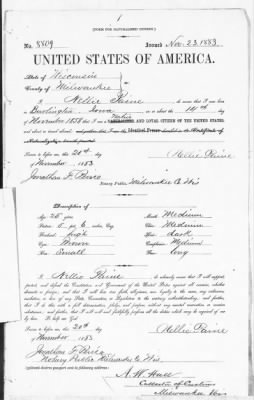 [FORM FOR NATURALIZED CITIZEN.]
No. 8809 Issued Nov. 23. 1883.
UNITED STATES OF AMERICA.
State of Wisconsin
County of Milwaukee
I, Nellie Paine, do swear that I was born
in Burlington Iowa on or about the 14th day
of November 1858 that I am a Native AND LOYAL CITIZEN OF THE UNITED STATES,
and about to travel abroad;
Sworn to before me, this 20th day
of November 1883
Nellie Paine
Jonathan F.
Notary Public, Milwaukee Co Wis
Description of
Age: 25 years
Mouth: Medium
Stature: 5 feet 6 inches, Eng.
Chin: Medium
Forehead: high
Hair: dark
Eyes: Brown
Complexion: Medium
Nose: Small
Face: long
I, Nellie Paine, do solemnly swear that I will support,
protect and defend the Constitution and Government of the United States against all enemies, whether
domestic or foreign; and that I will bear true faith, allegiance, and loyalty to the same, any ordinance,
resolution, or law of any State, Convention, or Legislature to the contrary notwithstanding; and further,
that I do this with a full determination, pledge, and purpose, without any mental reservation or evasion
whatsoever; and further, that I will well and faithfully perform all the duties which may be required of me
by law: So help me God.
Sworn to before me, this 20th day
November 1883
Nellie Paine
Jonathan F.
Notary Public Milwaukee Co Wis.
Collector of Customs
Milwaukee Wis